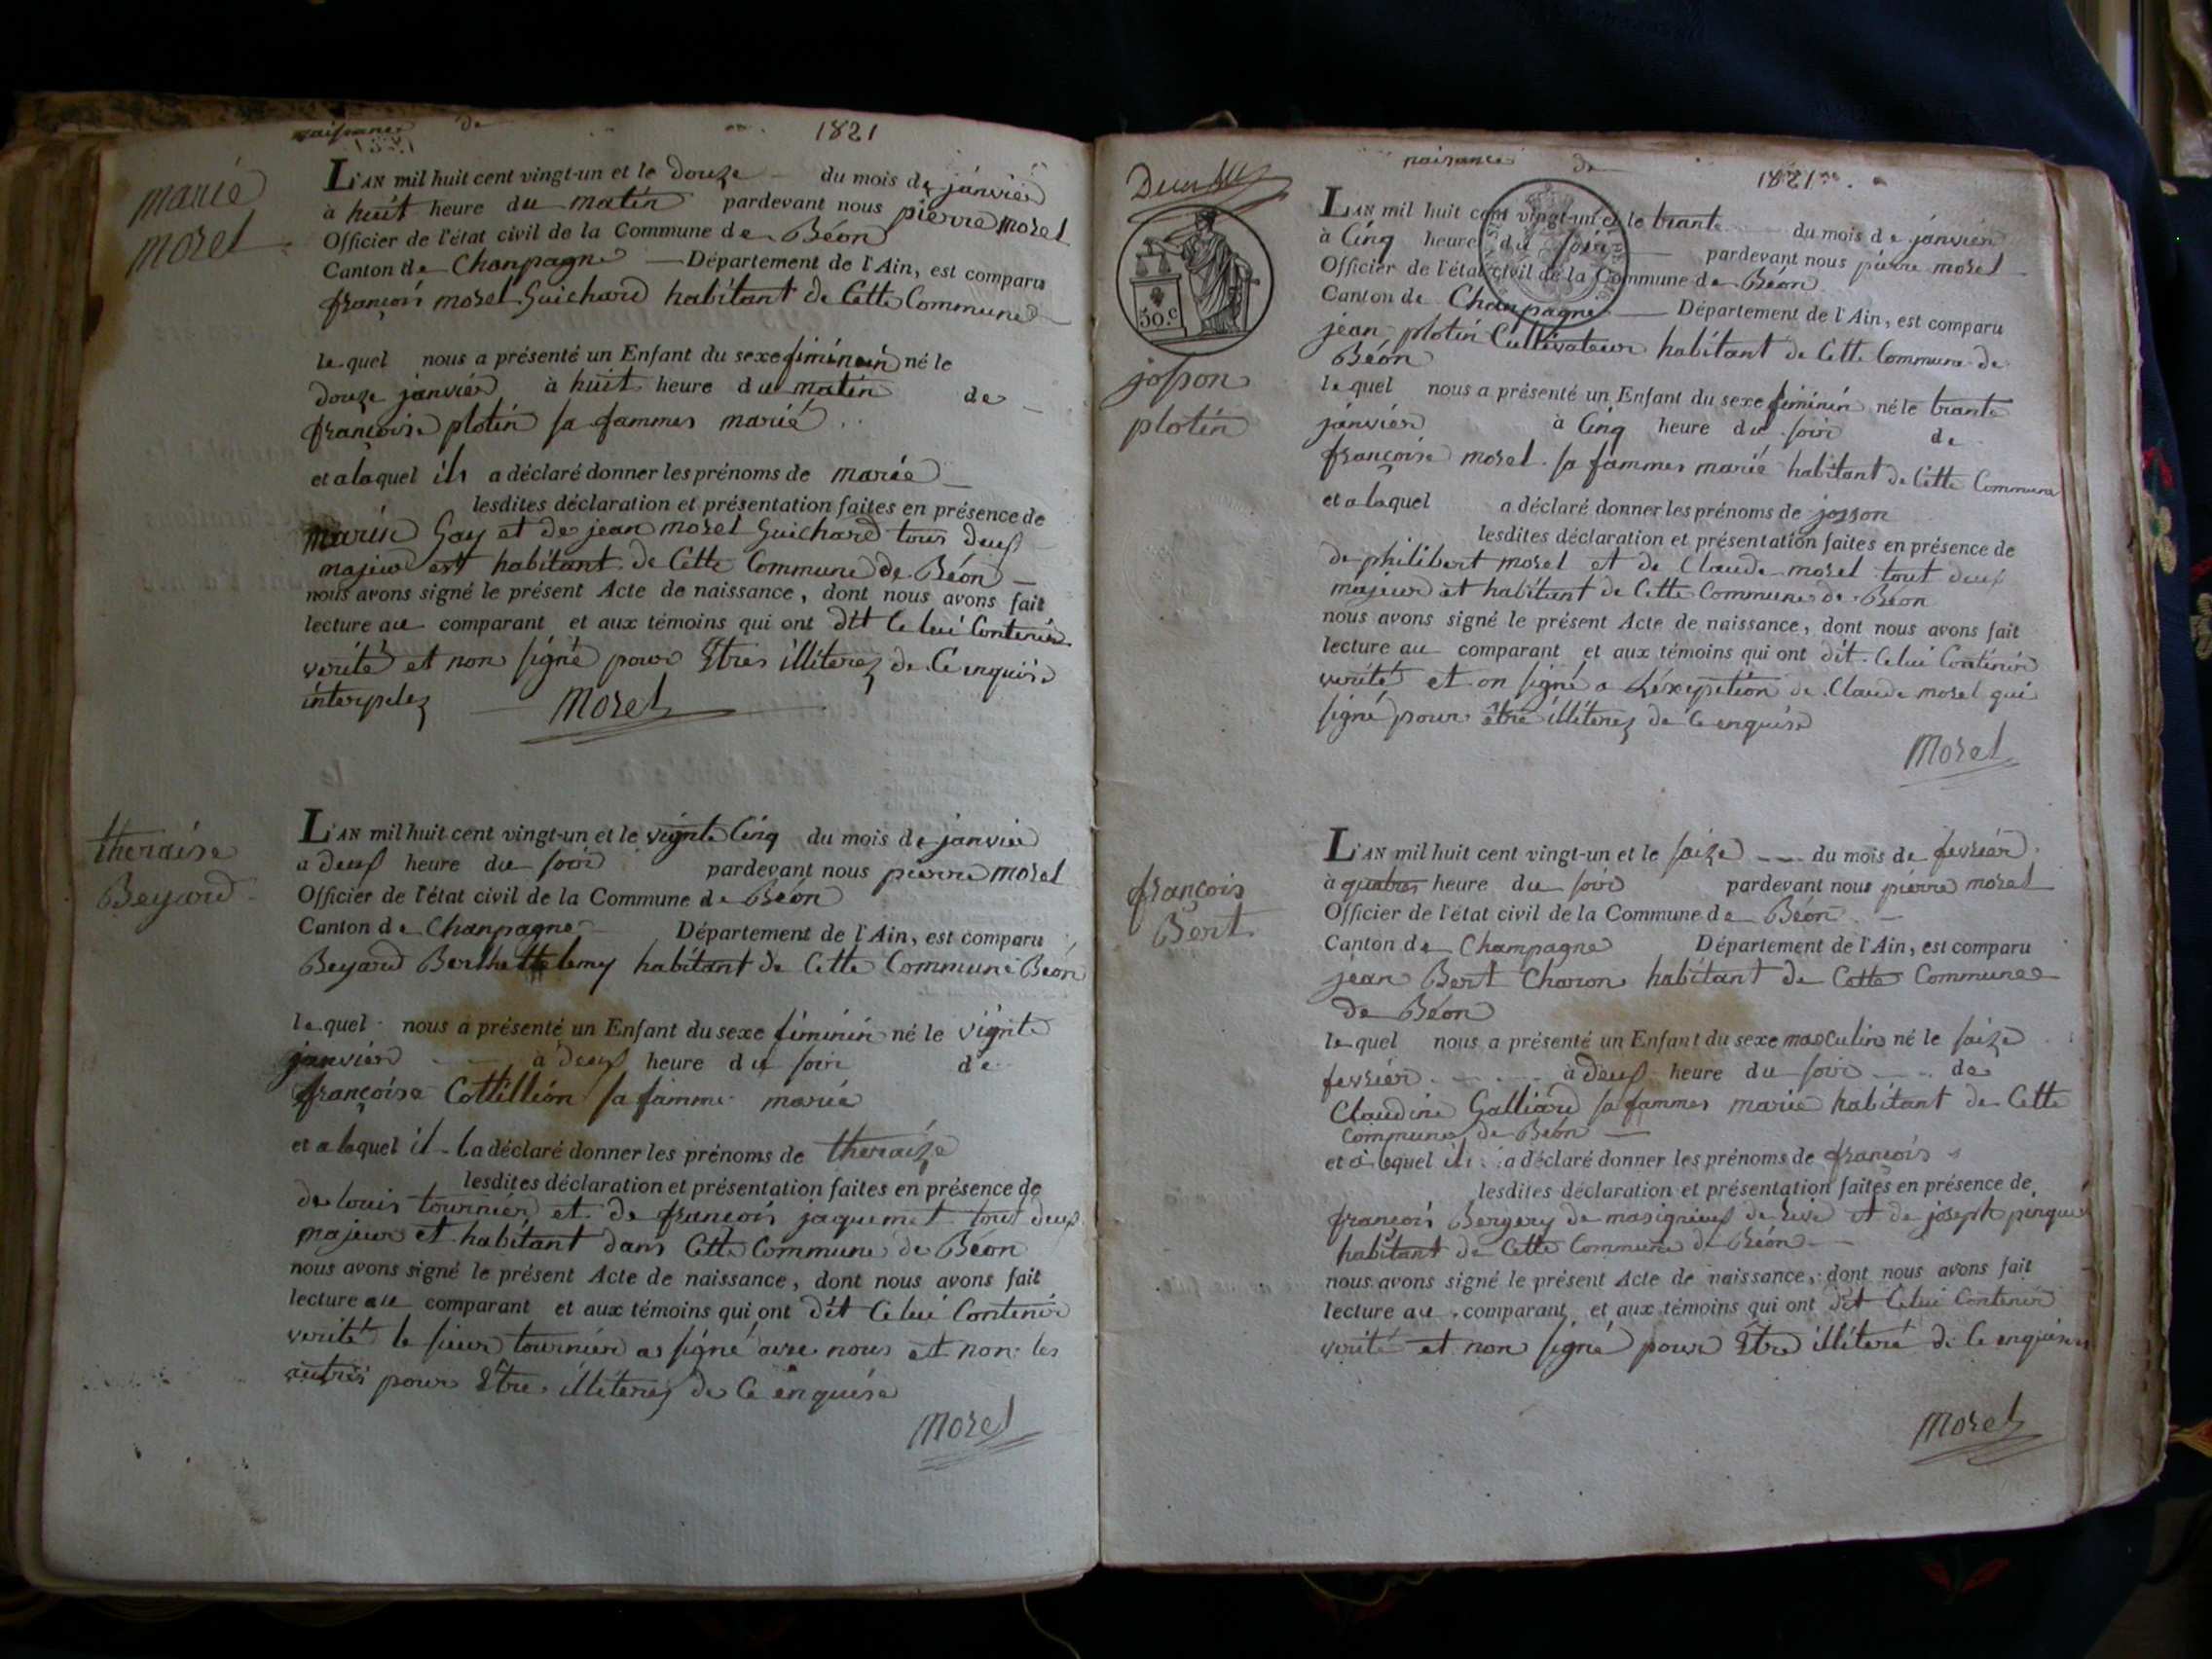 naissance de 1821
marié
morel
L'AN mil huit cent vingt-un et le douze du mois de janvier
à huit heure du matin pardevant nous pierre morel
Officier de l'état civil de la Commune de Béon
Canton de Chanpagne Département de l'Ain, est comparu
françois morel Guichard habitant de Cette Commune
le quel nous a présenté un Enfant du sexe féminin né le
douze janvier à huit heure du matin de
françoise plotin sa fammes marié
et a laquel ils a déclaré donner les prénoms de marie
lesdites déclaration et présentation faites en présence de
marin Gay et de jean morel Guichard tous deuf
majeur est habitant de Cette Commune de Béon
nous avons signé le présent Acte de naissance, dont nous avons fait
lecture au comparant et aux témoins qui ont dit Celui Contenir
verité et non signé pour Etres illiterez de Ce enquise
interpelez Morel
theraise
Beyard
L'AN mil huit cent vingt-un et le vignte Cinq du mois de janvier
a deuf heure du soir pardevant nous pierre morel
Officier de l'état civil de la Commune de Béon
Canton de Chanpagne Département de l'Ain, est comparu
Beyard habitant de Cette Commune Béon
le quel nous a présenté un Enfant du sexe féminin né le vignte
janvier à deuf heure du soir de
françoise Cottillion sa famme marié
et a laquel il la déclaré donner les prénoms de theraize
lesdites déclaration et présentation faites en présence de
de louis tournier et de françois jaquemet tout deuf
majeur et habitant dans Cette Commune de Béon
nous avons signé le présent Acte de naissance, dont nous avons fait
lecture au comparant et aux témoins qui ont dit Celui Contenir
verité le sieur tournier a signé avec nous et non les
autres pour Etre illiterez de Ce enquise
Morel
naisance de 1821
50.c
josson
plotin
L'AN mil huit cent vingt-un et le trante du mois de janvier
à Cinq heure du soir pardevant nous pierre morel
Officier de l'état civil de la Commune de Béon
Canton de Chanpagne Département de l'Ain, est comparu
jean plotin Cultivateur habitant de Cette Commune de
Béon
le quel nous a présenté un Enfant du sexe féminin né le trante
janvier à Cinq heure du soir de
françoise morel sa fammes marié habitant de Cette Commune
et a laquel a déclaré donner les prénoms de josson
lesdites déclaration et présentation faites en présence de
de philibert morel et de Claude morel tout deuf
majeur et habitant de Cette Commune de Béon
nous avons signé le présent Acte de naissance, dont nous avons fait
lecture au comparant et aux témoins qui ont dit Celui Contenir
verité et on signé a de Claude morel qui
signé pour être illiterez de Ce enquise
Morel
françois
Bert
L'AN mil huit cent vingt-un et le saize du mois de fevrier
à quatres heure du soir pardevant nous pierre morel
Officier de l'état civil de la Commune de Béon
Canton de Champagne Département de l'Ain, est comparu
jean Bert Charon habitant de Cette Commune
de Béon
le quel nous a présenté un Enfant du sexe masculin né le saize
fevrier à deuf heure du soir de
Claudine Galliard sa fammes marié habitant de Cette
Commune de Béon
et a laquel ils a déclaré donner les prénoms de françois
lesdites déclaration et présentation faites en présence de
françois Bergery de et de joseph
habitant de Cette Commune de Béon
nous avons signé le présent Acte de naissance, dont nous avons fait
lecture au comparant et aux témoins qui ont dit Celui Contenir
verité et non signé pour Etre illiteré de Ce enquises
Morel